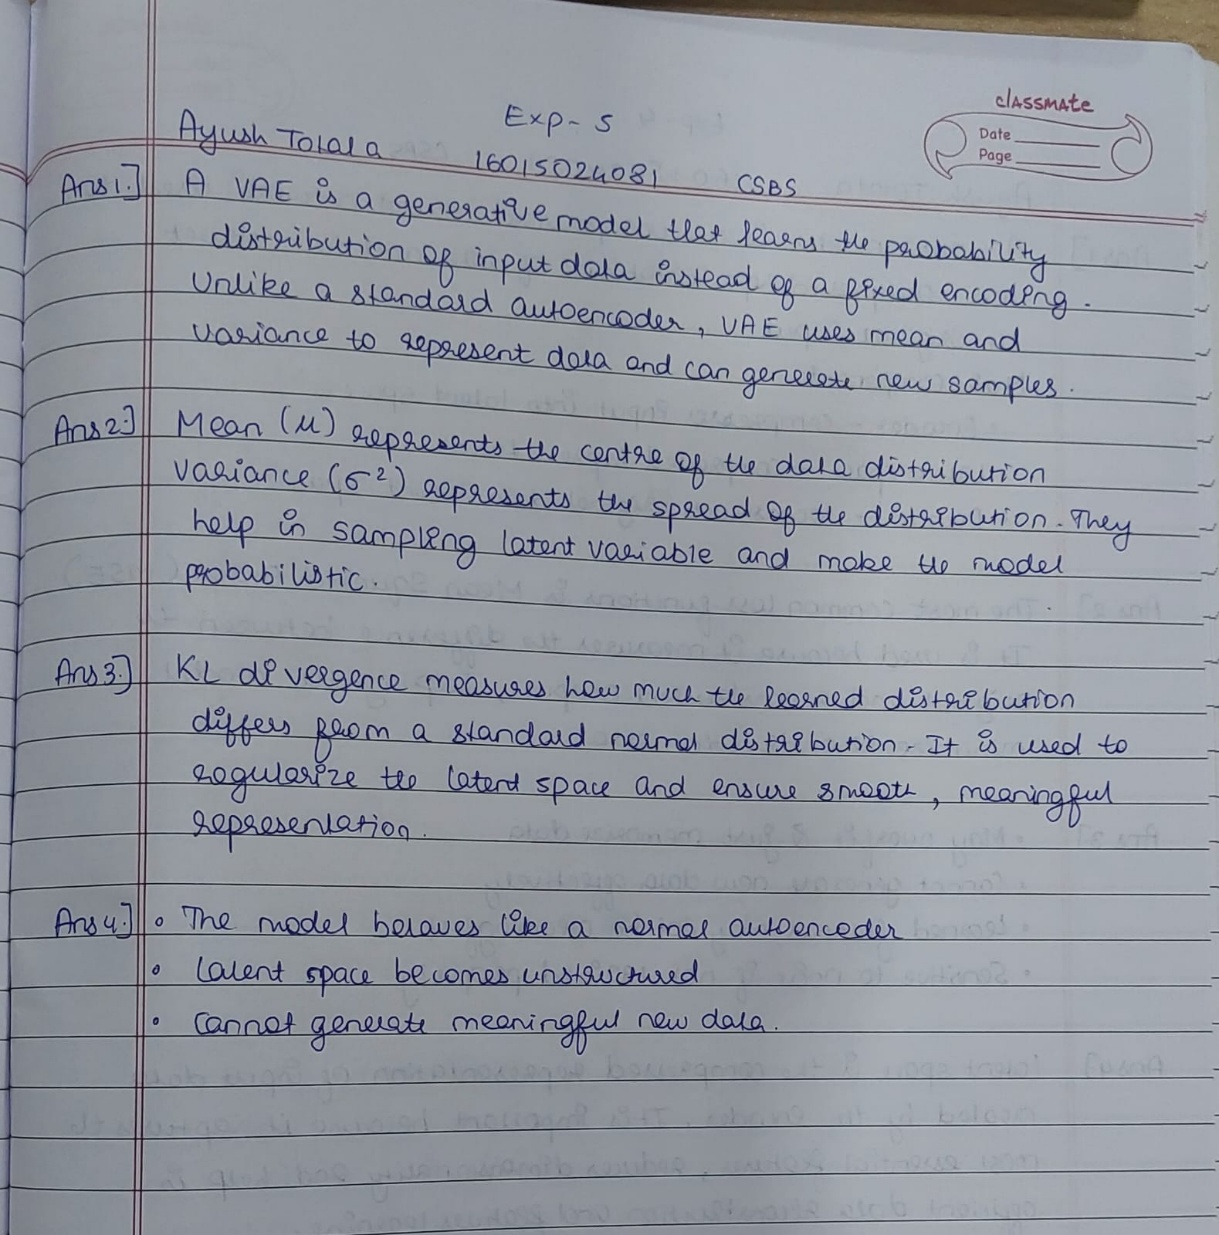 classmate
Date
Page
Exp - 5
Ayush Tolala 16015024081 CSBS
Ans 1.] A VAE is a generative model that learns the probability
distribution of input data instead of a fixed encoding.
Unlike a standard autoencoder, VAE uses mean and
variance to represent data and can generate new samples.
Ans 2.] Mean (μ) represents the centre of the data distribution
variance (σ²) represents the spread of the distribution. They
help in sampling latent variable and make the model
probabilistic.
Ans 3.] KL divergence measures how much the learned distribution
differs from a standard normal distribution. It is used to
regularize the latent space and ensure smooth, meaningful
representation.
Ans 4.] • The model behaves like a normal autoencoder
• Latent space becomes unstructured
• Cannot generate meaningful new data.